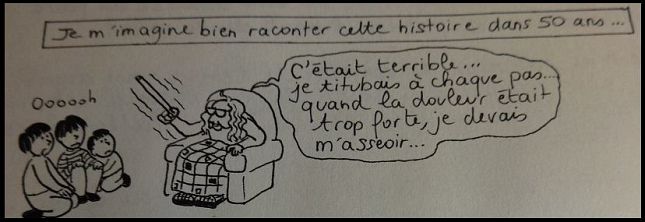 Je m'imagine bien raconter cette histoire dans 50 ans...
Oooooh
C'était terrible...
je titubais à chaque pas...
quand la douleur était
trop forte, je devais
m'asseoir...